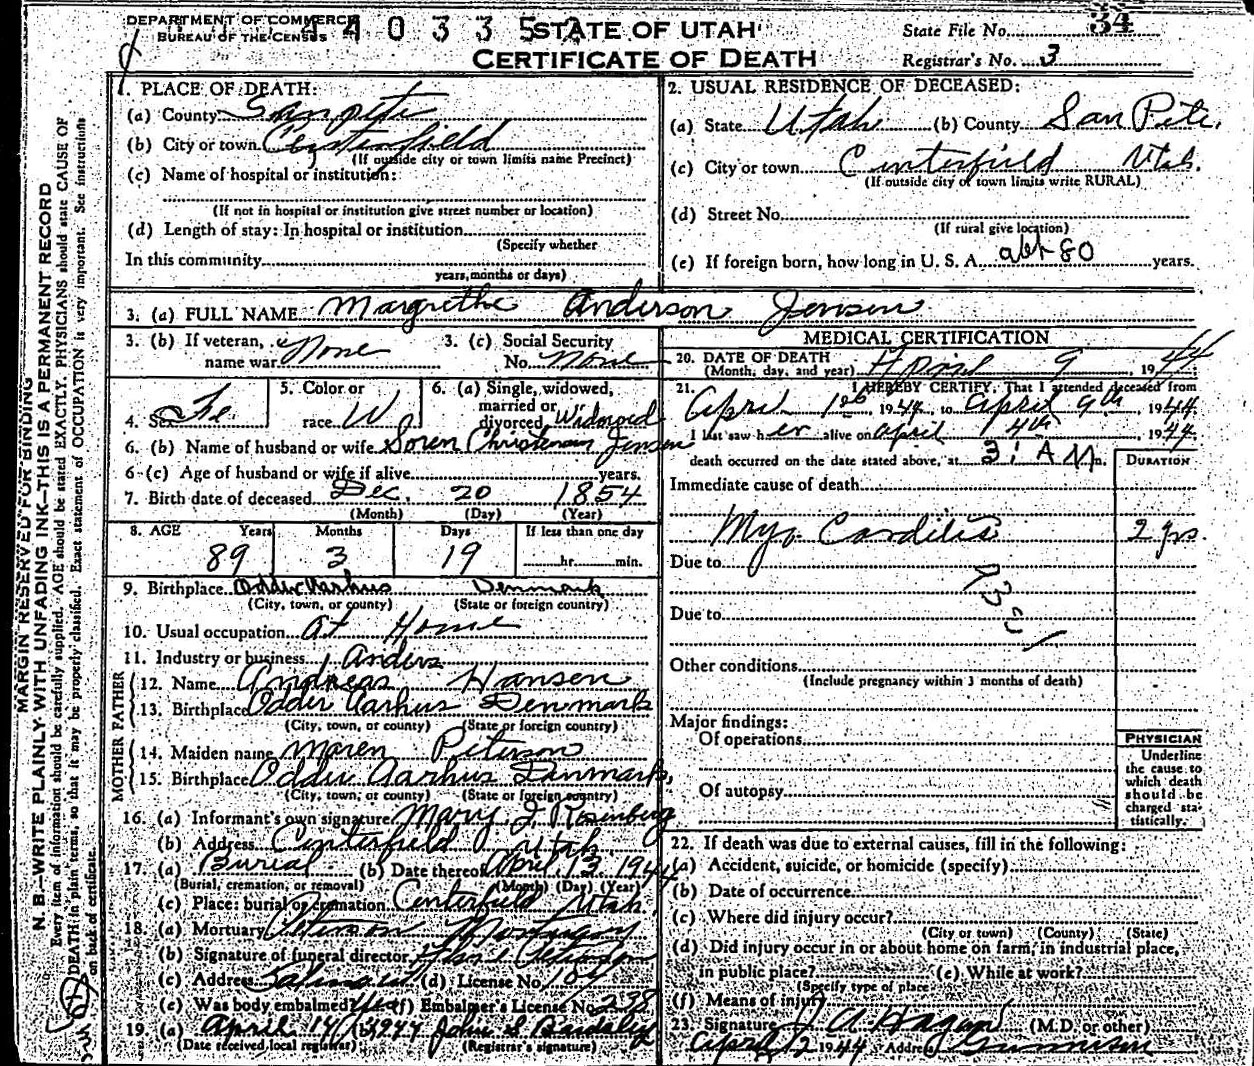 DEPARTMENT OF COMMERCE
BUREAU OF THE CENSUS
STATE OF UTAH
CERTIFICATE OF DEATH
State File No. 34
Registrar's No. 3
MARGIN RESERVED FOR BINDING
N. B.—WRITE PLAINLY WITH UNFADING INK—THIS IS A PERMANENT RECORD
Every item of information should be carefully supplied. AGE should be stated EXACTLY. PHYSICIANS should state CAUSE OF
DEATH in plain terms, so that it may be properly classified. Exact statement of OCCUPATION is very important. See instructions
on back of certificate.
1. PLACE OF DEATH:
(a) County Sanpete
(b) City or town Centerfield
(If outside city or town limits name Precinct)
(c) Name of hospital or institution:
(If not in hospital or institution give street number or location)
(d) Length of stay: In hospital or institution
(Specify whether
In this community
years, months or days)
2. USUAL RESIDENCE OF DECEASED:
(a) State Utah (b) County San Pete.
(c) City or town Centerfield Utah.
(If outside city or town limits write RURAL)
(d) Street No.
(If rural give location)
(e) If foreign born, how long in U. S. A. abt 80 years.
3. (a) FULL NAME Margrethe Anderson Jensen
3. (b) If veteran, name war None
3. (c) Social Security No. None
4. Sex Fe
5. Color or race W
6. (a) Single, widowed, married or divorced Widowed
6. (b) Name of husband or wife Soren Christensen Jensen
6-(c) Age of husband or wife if alive years.
7. Birth date of deceased Dec. 20 1854
(Month) (Day) (Year)
8. AGE Years Months Days If less than one day
89 3 19 hr. min.
9. Birthplace Odder Aarhus Denmark
(City, town, or county) (State or foreign country)
10. Usual occupation At Home
11. Industry or business
Anders
FATHER
12. Name Andreas Hansen
13. Birthplace Odder Aarhus Denmark
(City, town, or county) (State or foreign country)
MOTHER
14. Maiden name Maren Peterson
15. Birthplace Odder Aarhus Denmark,
(City, town, or county) (State or foreign country)
16. (a) Informant's own signature Mary J Rosenberg
(b) Address Centerfield Utah.
17. (a) Burial (b) Date thereof April 13 1944
(Burial, cremation, or removal) (Month) (Day) (Year)
(c) Place: burial or cremation Centerfield Utah.
18. (a) Mortuary Mortuary
(b) Signature of funeral director
(c) Address Salina ut (d) License No. 107
(e) Was body embalmed Yes (f) Embalmer's License No. 238
19. (a) April 14 1944 John S Bardsley
(Date received local registrar) (Registrar's signature)
MEDICAL CERTIFICATION
20. DATE OF DEATH
(Month, day, and year) April 9, 1944
21. I HEREBY CERTIFY, That I attended deceased from
April 1st, 1944, to April 9th, 1944
I last saw her alive on April 4th, 1944
death occurred on the date stated above, at 3: A M m.
DURATION
Immediate cause of death
Myo Carditis 2 yrs.
Due to
Due to
Other conditions
(Include pregnancy within 3 months of death)
Major findings:
Of operations
Of autopsy
PHYSICIAN
Underline
the cause to
which death
should be
charged sta-
tistically.
22. If death was due to external causes, fill in the following:
(a) Accident, suicide, or homicide (specify)
(b) Date of occurrence
(c) Where did injury occur?
(City or town) (County) (State)
(d) Did injury occur in or about home on farm, in industrial place,
in public place? (e) While at work?
(Specify type of place
(f) Means of injury
23. Signature J A Hagan (M.D. or other)
April 12 1944 Address Gunnison